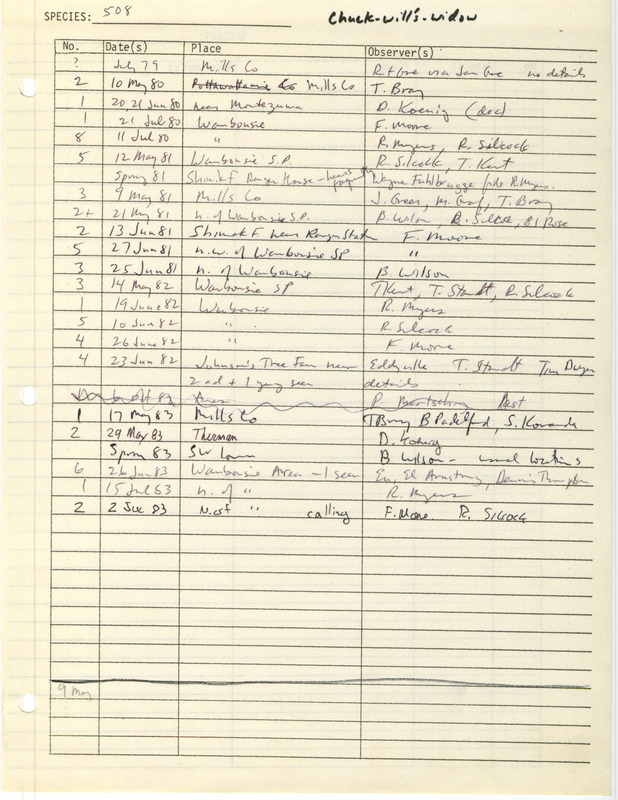 SPECIES: 508 Chuck-will's-widow
No. Date(s) Place Observer(s)
? July 79 Mills Co no details
2 10 May 80 Pottawattamie Co Mills Co T. Bray
1 20 21 Jun 80 near Montezuma D. Koenig (doc)
1 21 Jul 80 Waubonsie F. Moore
8 11 Jul 80 " R. Myers, R. Silcock
5 12 May 81 Waubonsie S.P. R. Silcock, T. Kent
Spring 81 Shimek F Ranger House - heard R. Myers.
3 9 May 81 Mills Co J. Green, M. Graf, T. Bray
2+ 21 May 81 n. of Waubonsie S.P. B. Wilson, R. Silcock, Bl Rose
2 13 Jun 81 Shimek F. near Ranger Station F. Moore
5 27 Jun 81 n.w. of Waubonsie SP "
3 25 Jun 81 n. of Waubonsie B Wilson
3 14 May 82 Waubonsie SP T Kent, T. Staudt, R. Silcock
1 19 June 82 Waubonsie R. Myers
5 10 June 82 " R. Silcock
4 26 June 82 " F. Moore
4 23 Jun 82 Johnson's Tree Farm near Eddyville T. Staudt Tim Dwyer
2 ad + 1 yng seen details
Area nest
1 17 May 83 Mills Co T Bray B Padelford, S. Kovanda
2 29 May 83 Thurman D. Koenig
Spring 83 SW Iowa B Wilson - usual locations
6 26 Jun 83 Waubonsie Area - 1 seen Eu, El Armstrong, Dennis Thompson
1 15 Jul 83 n. of " R. Myers
2 2 Jul 83 N. of " calling F. Moore R. Silcock
9 May